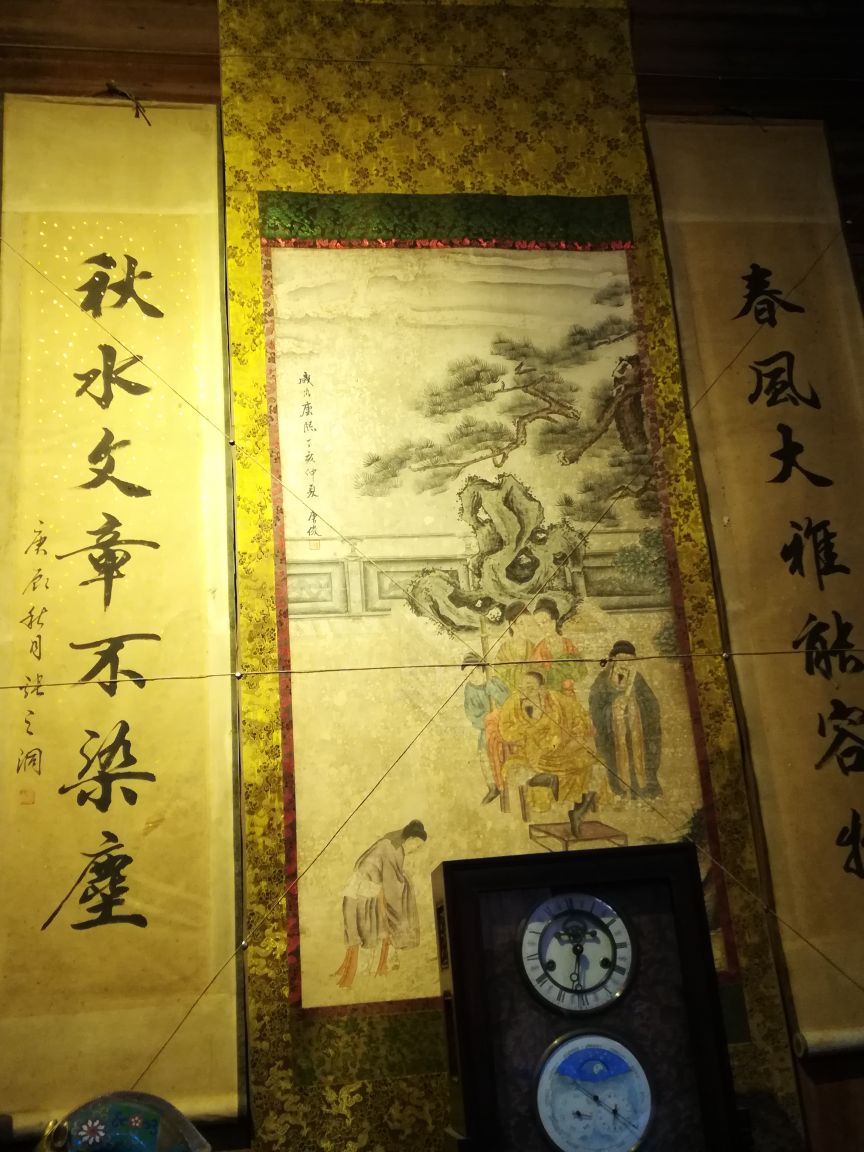 春風大雅能容物
歲次康熙丁亥仲夏
秋水文章不染塵
庚辰秋月張之洞